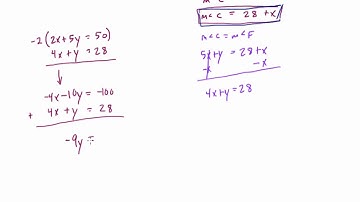 -2(2x+5y = 50)
4x+y = 28
-4x-10y = -100
+ 4x + y = 28
-9y =
m∠C = 28 + x
m∠C = m∠F
5x+y = 28+x
-x -x
4x+y = 28